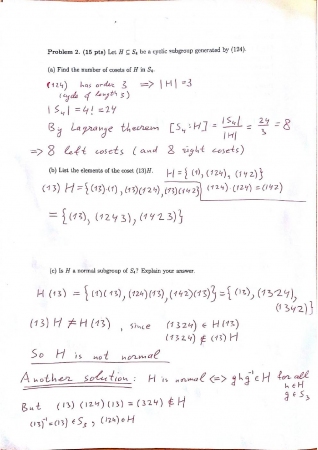 Problem 2. (15 pts) Let H ⊆ S₄ be a cyclic subgroup generated by (124).
(a) Find the number of cosets of H in S₄.
(124) has order 3 => |H| = 3
(cycle of length 3)
|S₄| = 4! = 24
By Lagrange theorem [S₄:H] = |S₄| / |H| = 24/3 = 8
=> 8 left cosets (and 8 right cosets)
(b) List the elements of the coset (13)H. H = {(1), (124), (142)}
(13) H = {(13)(1), (13)(124), (13)(142)} (124)·(124) = (142)
= {(13), (1243), (1423)}
(c) Is H a normal subgroup of S₄? Explain your answer.
H(13) = {(1)(13), (124)(13), (142)(13)} = {(13), (1324),
(1342)}
(13) H ≠ H(13) , since (1324) ∈ H(13)
(1324) ∉ (13) H
So H is not normal
Another solution: H is normal <=> ghg⁻¹ ∈ H for all
h∈H
g∈S₃
But (13) (124) (13) = (324) ∉ H
(13)⁻¹ = (13) ∈ S₃ , (124) ∈ H